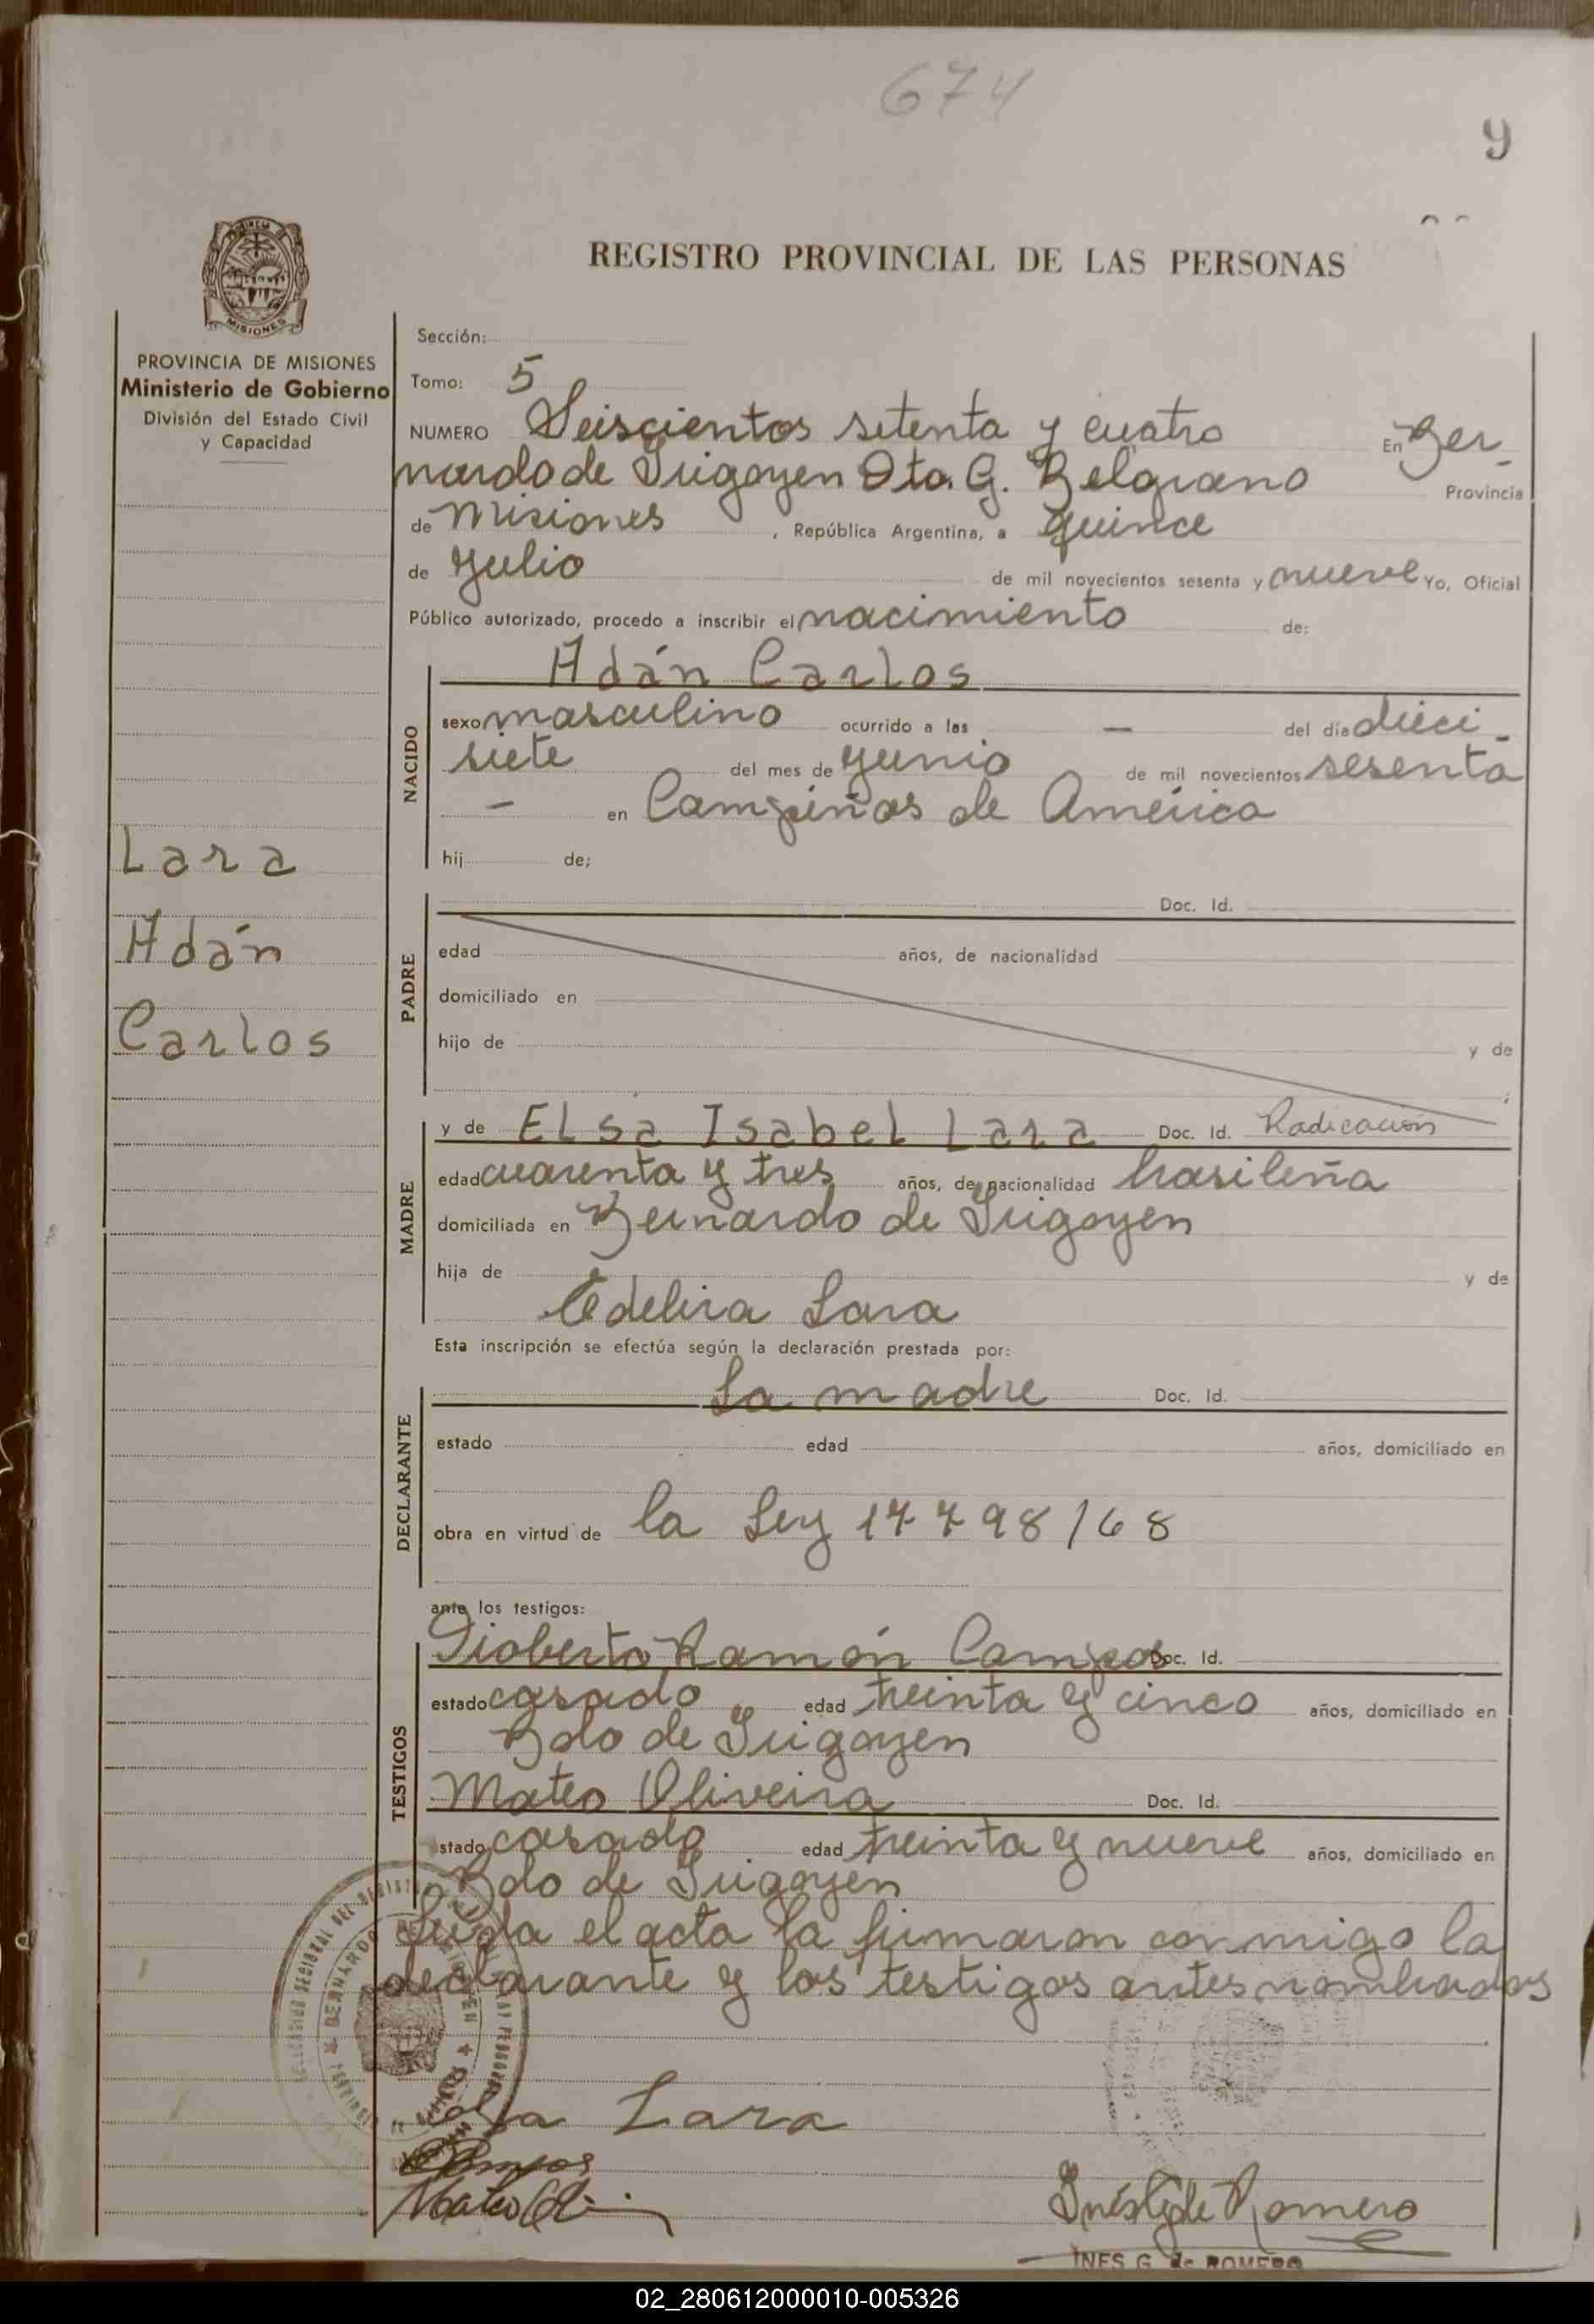 674
9
REGISTRO PROVINCIAL DE LAS PERSONAS
MISIONES
PROVINCIA DE MISIONES
Ministerio de Gobierno
División del Estado Civil
y Capacidad
Lara
Adán
Carlos
Sección:
Tomo: 5
NUMERO Seiscientos setenta y cuatro En Ber-
nardo de Irigoyen Dto. G. Belgrano Provincia
de Misiones, República Argentina, a quince
de Julio de mil novecientos sesenta y nueve Yo, Oficial
Público autorizado, procedo a inscribir el nacimiento de:
NACIDO
Adán Carlos
sexo masculino ocurrido a las — del día dieci-
siete del mes de Junio de mil novecientos sesenta
— en Campiñas de América
hij de;
PADRE
Doc. Id.
edad años, de nacionalidad
domiciliado en
hijo de y de
;
MADRE
y de Elsa Isabel Lara Doc. Id. Radicación
edad cuarenta y tres años, de nacionalidad brasileña
domiciliada en Bernardo de Irigoyen
hija de y de
Edelira Lara
Esta inscripción se efectúa según la declaración prestada por:
DECLARANTE
La madre Doc. Id.
estado edad años, domiciliado en
obra en virtud de la Ley 17798/68
ante los testigos:
TESTIGOS
Dioberto Ramón Campos Doc. Id.
estado casado edad treinta y cinco años, domiciliado en
Bdo de Irigoyen
Mateo Oliveira Doc. Id.
estado casado edad treinta y nueve años, domiciliado en
Bdo de Irigoyen
Leída el acta la firmaron conmigo la
declarante y los testigos antes nombrados
Elsa Lara
Campos
Mateo
Inés G de Romero
INES G. de ROMERO
02_280612000010-005326